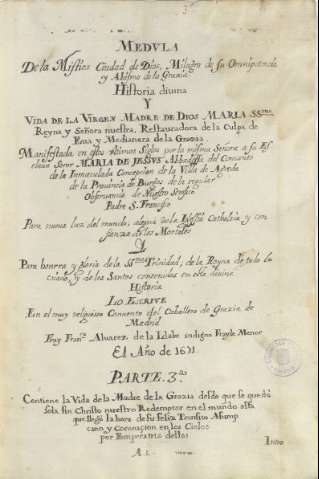 MEDULA
De la Mistica Ciudad de Dios, Milagro de su Omnipotencia
y Abismo de la Gracia
Historia divina
Y
VIDA DE LA VIRGEN MADRE DE DIOS MARIA SS.ma
Reyna y Señora nuestra, Restauradora de la Culpa de
Eua y Medianera de la Gracia
Manifestada en estos vltimos Siglos por la misma Señora a su Es
claua Soror MARIA DE JESVS Abbadessa del Conuento
de la Inmaculada Concepcion de la Villa de Agreda
de la Provincia de Burgos de la regular
Obseruancia de Nuestro Serafico
Padre S. Francisco
Para nueua luz del mundo, alegria de la Iglesia Catholica y con
fianza de los Mortales
Para honrra y gloria de la SS.ma Trinidad, de la Reyna de todo lo
criado, y de los Santos contenidos en esta diuina
Historia
LO ESCRIVE
En el muy religioso Conuento del Cauallero de Gracia, de
Madrid
Fray Fran.co Aluarez de la indigno Frayle Menor
El Año de
PARTE. 3.a
Contiene la Vida de la Madre de la Gracia desde que se quedó
sola sin Christo nuestro Redemptor en el mundo asta
que llegó la hora de su feliz Transito Asump
cion y Coronacion en los Cielos
por Emperatriz dellos
Intro